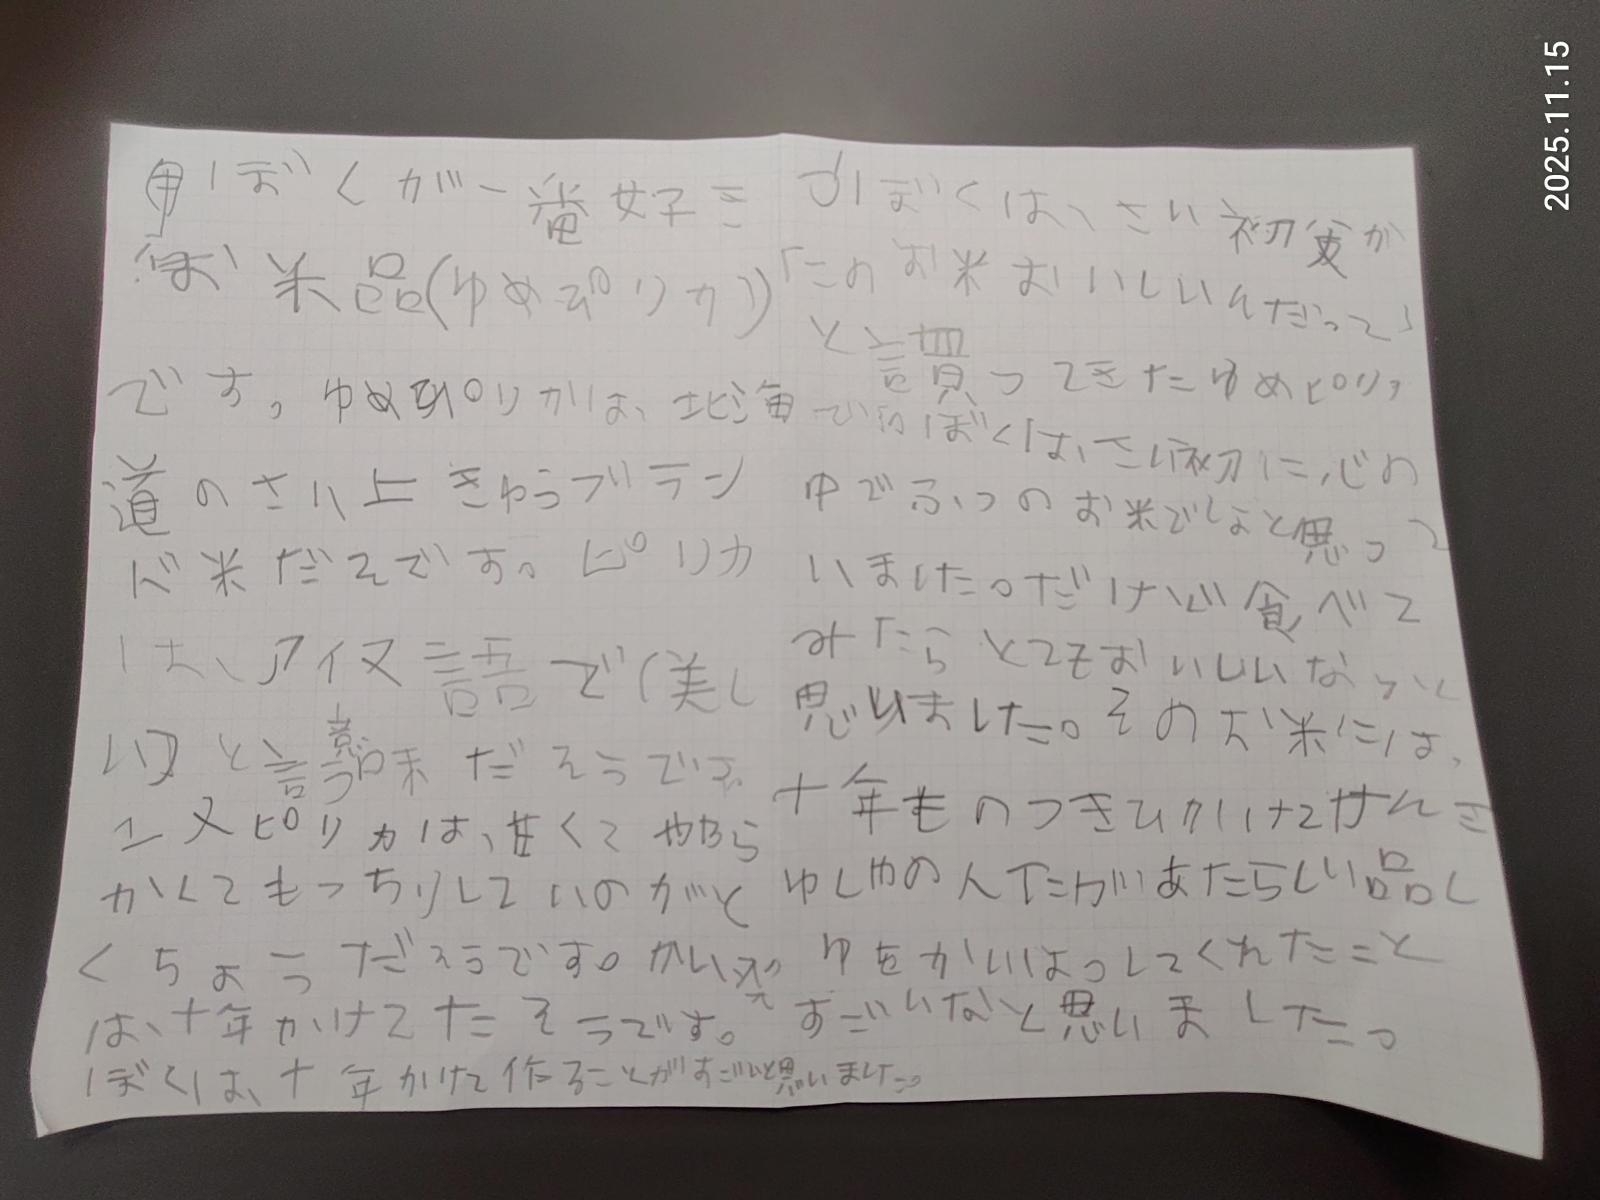 ぼくが一番好き
お米品(ゆめぴりか)
です。ゆめぴりかは、北海
道のさい上きゅうブラン
ド米だそです。ピリカ
は、アイヌ語で(美し
い)と言意味だそうです。
ユメピリカは、甘くてやわら
かくてもっちりしていのがと
くちょうだそうです。かい発
は、十年かけてたそうです。
ぼくは、十年かけて作ることがすごいと思いました。
ぼくは、さい初父が
「このお米おいしいんだって」
と言買ってきたゆめピリカ
ぼくは、さい初に心の
中でふつのお米でしょと思って
いました。だけど食べて
みたらとてもおいしいなっと
思いました。そのお米には、
十年ものつきひかけてけんき
ゆしゃの人たちがあたらしい品し
ゆをかいはつしてくれたこと
すごいなと思いました。
2025.11.15